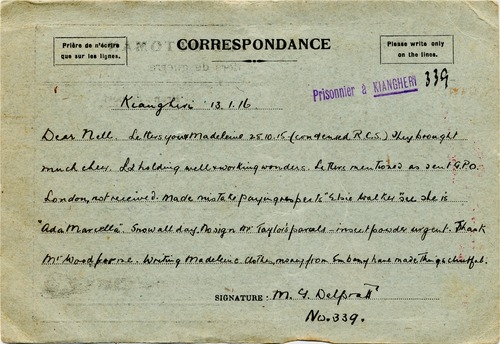 Prière de n'écrire
que sur les lignes.
CORRESPONDANCE
Please write only
on the lines.
Prisonnier à KIANGHERI 339
Kianghiri 13.1.16
Dear Nell. Letters you & Madeleine 25.10.15 (condensed R.C.S.) They brought
much cheer. holding well & working wonders. Letters mentioned as sent G.P.O.
London, not received. Made mistake paying respects "Elsie Walker" see she is
"Ada Marcella". Snow all day. No sign Mr Taylor's parcels – insect powder urgent. Thank
Mr Woodpearne. Writing Madeleine. Clothes, money from Embassy have made things cheerful.
SIGNATURE: M. G. Delpratt
No. 339.